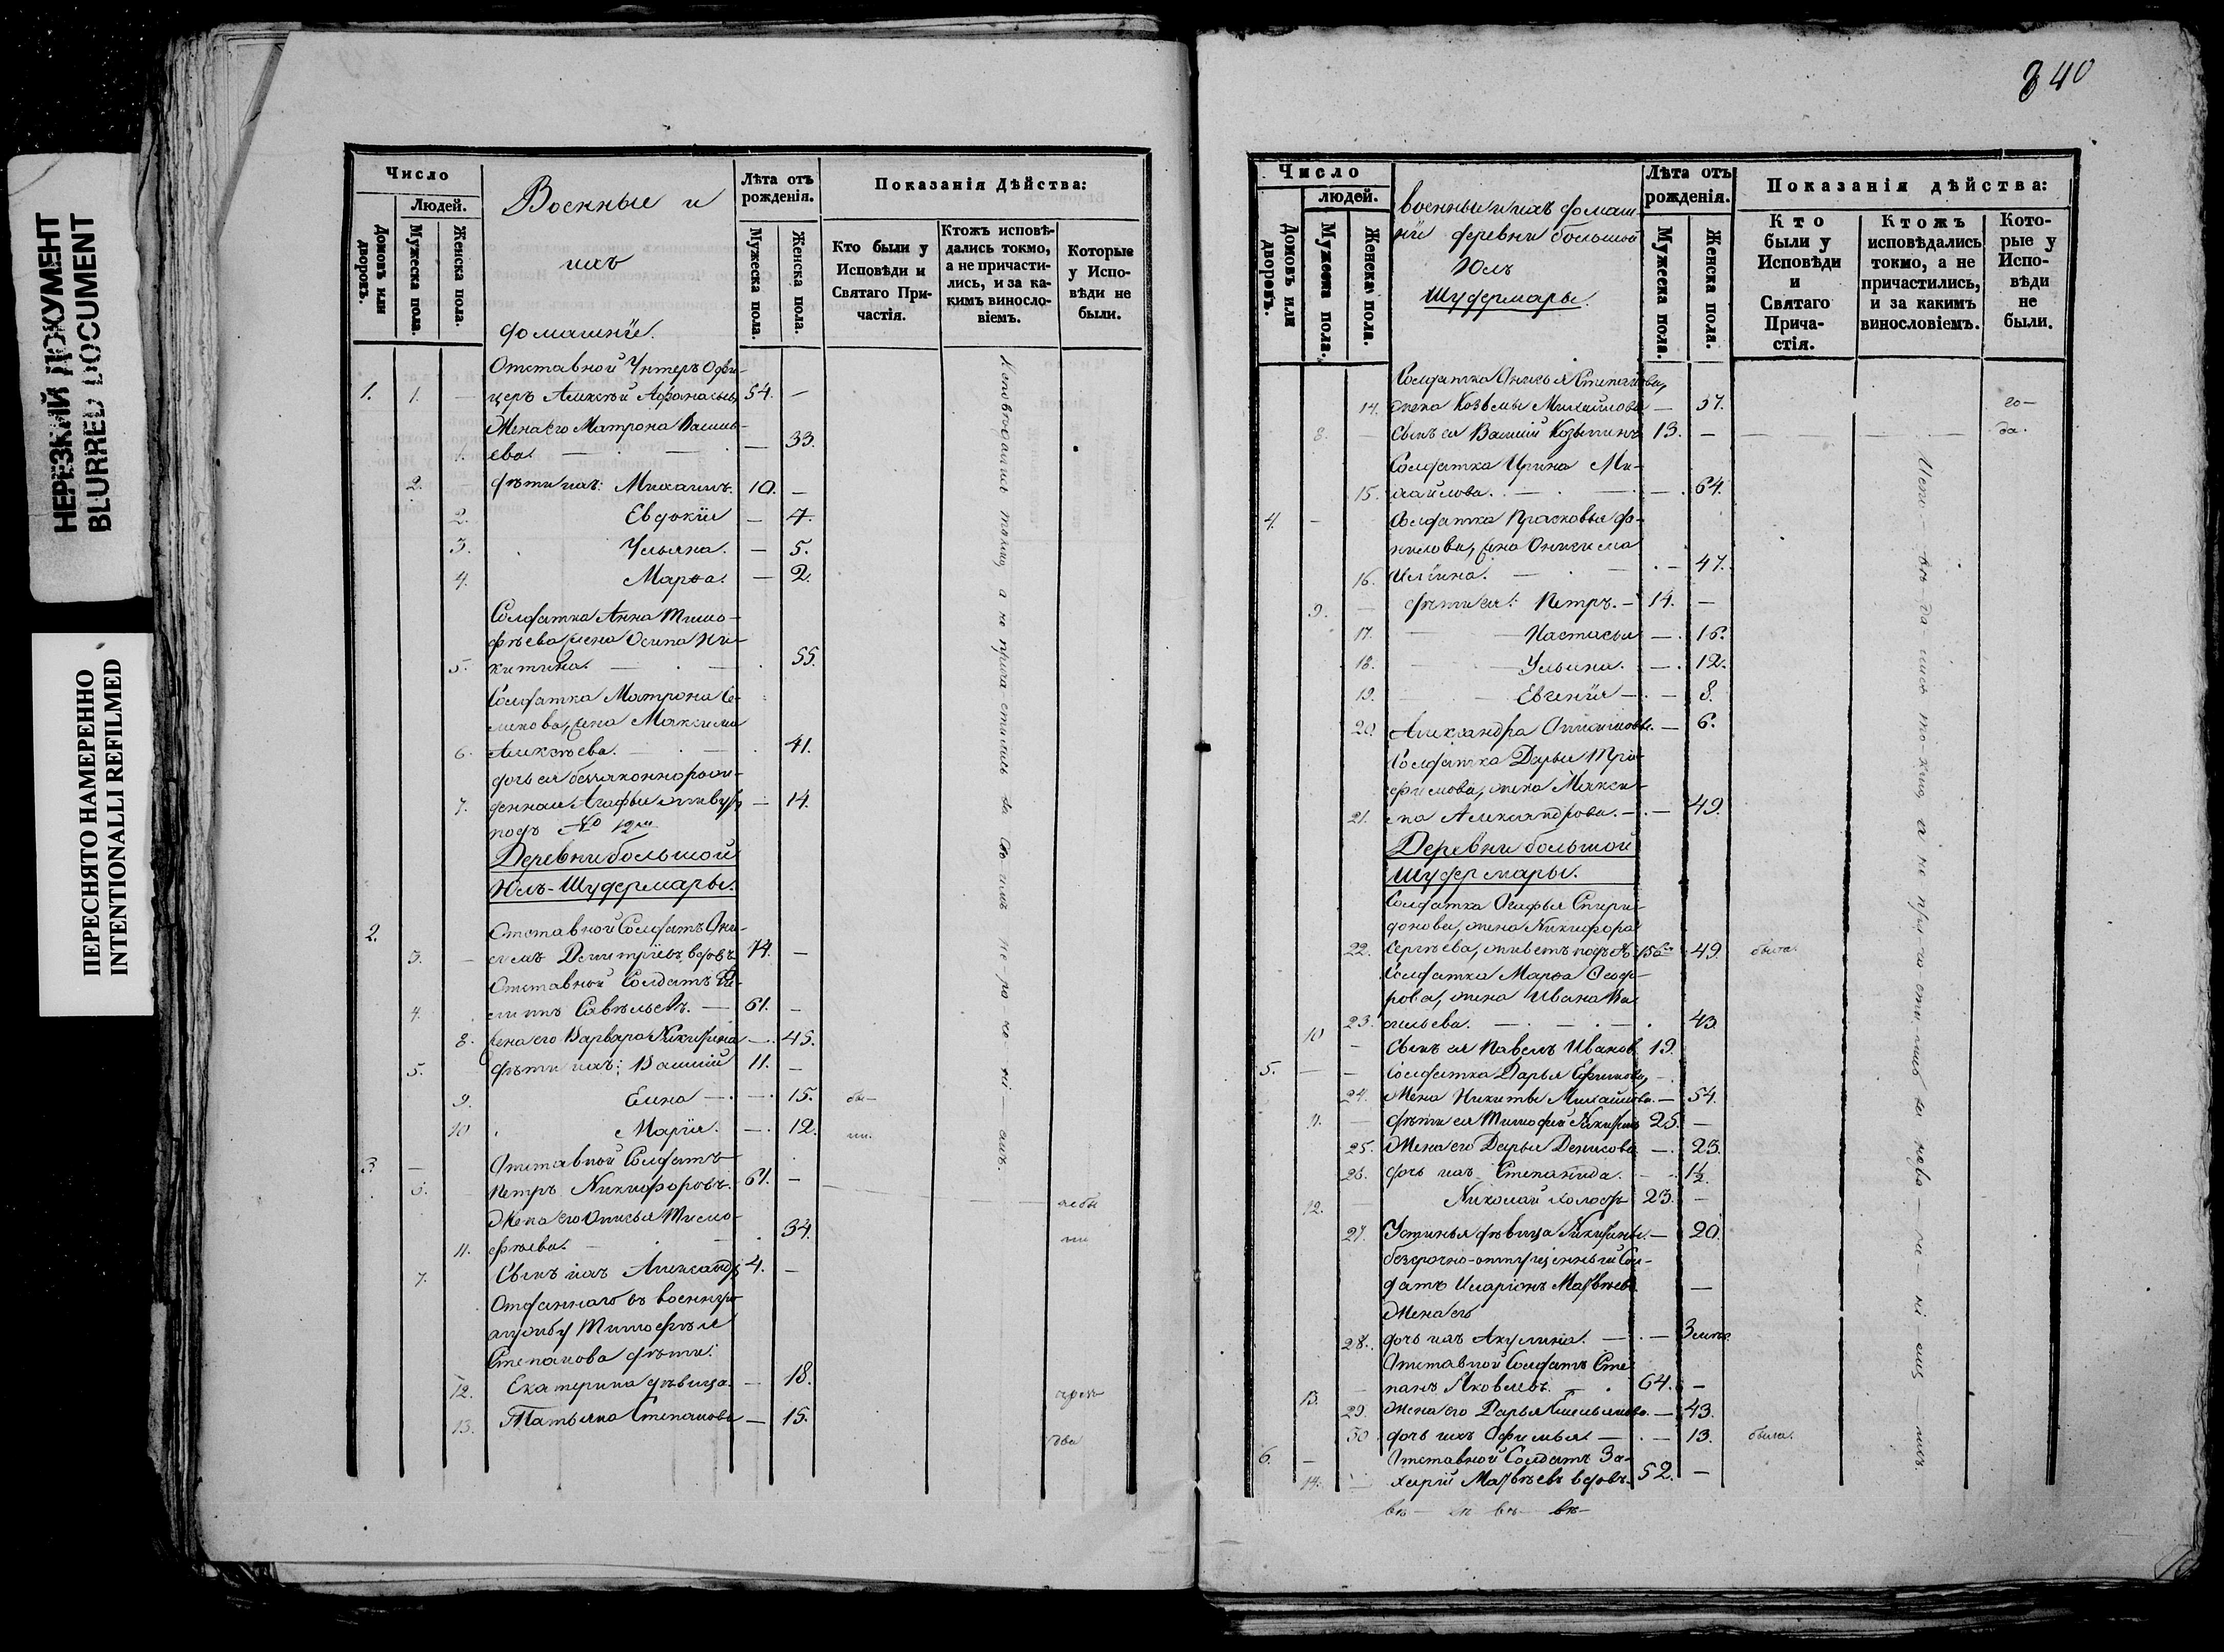 НЕРЕЗКИЙ ДОКУМЕНТ
BLURRED DOCUMENT
ПЕРЕСНЯТО НАМЕРЕННО
INTENTIONALLI REFILMED
Число
Людей.
Домовъ или дворовъ.
Мужеска пола.
Женска пола.
Военные и
ихъ
домашнїе.
Лѣта отъ рожденія.
Мужеска пола
Женска пола.
Показанія Дѣйства:
Кто были у Исповѣди и Святаго Причастія.
Ктожъ исповѣ-
дались токмо,
а не причасти-
лись, и за ка-
кимъ винносло-
віемъ.
Которые
у Испо-
вѣди не
были.
Отставной Унтеръ Офи-
1. 1. — церъ Алексѣй Афанасьевъ 54. —
Жена его Матрона Василь-
1. ева. — 33.
2. — дѣти ихъ: Михаилъ. 10. —
2. Евдокїя — 7.
3. Ульяна. — 5.
4. Марѳа. — 2.
Солдатка Анна Тимо-
фѣева, жена Осипа Ни-
5. китина. — 55.
Солдатка Матрона Се-
менова, жена Максима
6. Алексѣева. — 41.
дочь ея беззаконнорож-
7. денная Агафья живутъ — 14.
подъ № 12м
Деревни большой
Юль-Шудермары.
2. Отставной Солдатъ Они-
3. — симъ Димитрїевъ, вдовъ. 74. —
Отставной Солдатъ
4. Савельевъ. — 61. —
8. жена его Варвара Никитина — 45.
5. дѣти ихъ: Василїй 11. —
9. Елена — 15. бы-
10 Марїя. — 12. ли.
3. — Отставной Солдатъ
6. Петръ Никифоровъ. 61. —
Жена его Анисья Тимо- небы
11. фѣева. 34. ли
7. Сынъ ихъ Александръ 4. —
Отданнаго въ военную
службу Тимофѣя
Степанова дѣти:
12. Екатерина дѣвица. — 18.
13. Татьяна Степанова — 15.
Исповѣдались токмо, а не причастились за
840
Число
людей.
Домовъ или дворовъ.
Мужеска пола.
Женска пола.
Военные и ихъ домаш-
нїе деревни большой
Юль
Шудермары.
Лѣта отъ рожденія.
Мужеска пола.
Женска пола.
Показанія дѣйства:
Кто
были у
Исповѣди
и
Святаго
Прича-
стія.
Ктожъ
исповѣдались
токмо, а не
причастились,
и за какимъ
винословіемъ.
Кото-
рые у
Испо-
вѣди
не
были.
Солдатка Анисья Степанова,
14. жена Козьмы Михайлова — 37.
8. — Сынъ ея Василїй Козьминъ 13. —
Солдатка Ирина Ми-
15. хайлова. — 64.
4. — Солдатка Прасковья Да-
нилова, жена Онисима
16. Ильина. — 47.
9. — дѣти ея: Петръ. — 14. —
17. Настасья — 16.
18. Ульяна. — 12.
19. Евгенїя — 8.
20. Александра — 6.
Солдатка Дарья Тро-
фимова, жена Макси-
21. ма Александрова. — 49.
Деревни большой
Шудермары.
Солдатка Агафья Спири-
донова, жена Никифора
22. Сергѣева, живетъ подъ № 49. была.
Солдатка Марѳа Ѳедо-
рова, жена Ивана Ва-
23. сильева. — 43.
10 — Сынъ ея Павелъ Иванов. 19.
5. — — Солдатка Дарья Ефимова,
24. Жена Никиты Михайлова. — 54.
11. — дѣти ея Тимофей Никитинъ 25. —
25. Жена его Дарья Денисова — 23.
26. дочь ихъ Степанида. — 1½.
12. — Николай холостъ 23. —
27. Устинья дѣвица Никитины. — 20.
безсрочно-отпущенный Сол-
датъ Иларїонъ Матвѣевъ —
Жена его
28. дочь ихъ Акулина. — 3
Отставной Солдатъ Сте-
13. — панъ Яковлевъ. — 64. —
29. Жена его Дарья Емельянова. — 43.
30 дочь ихъ Офимья. — 13. была.
6. — Отставной Солдатъ За-
14. — харїй Матвѣевъ вдовъ. 52. —